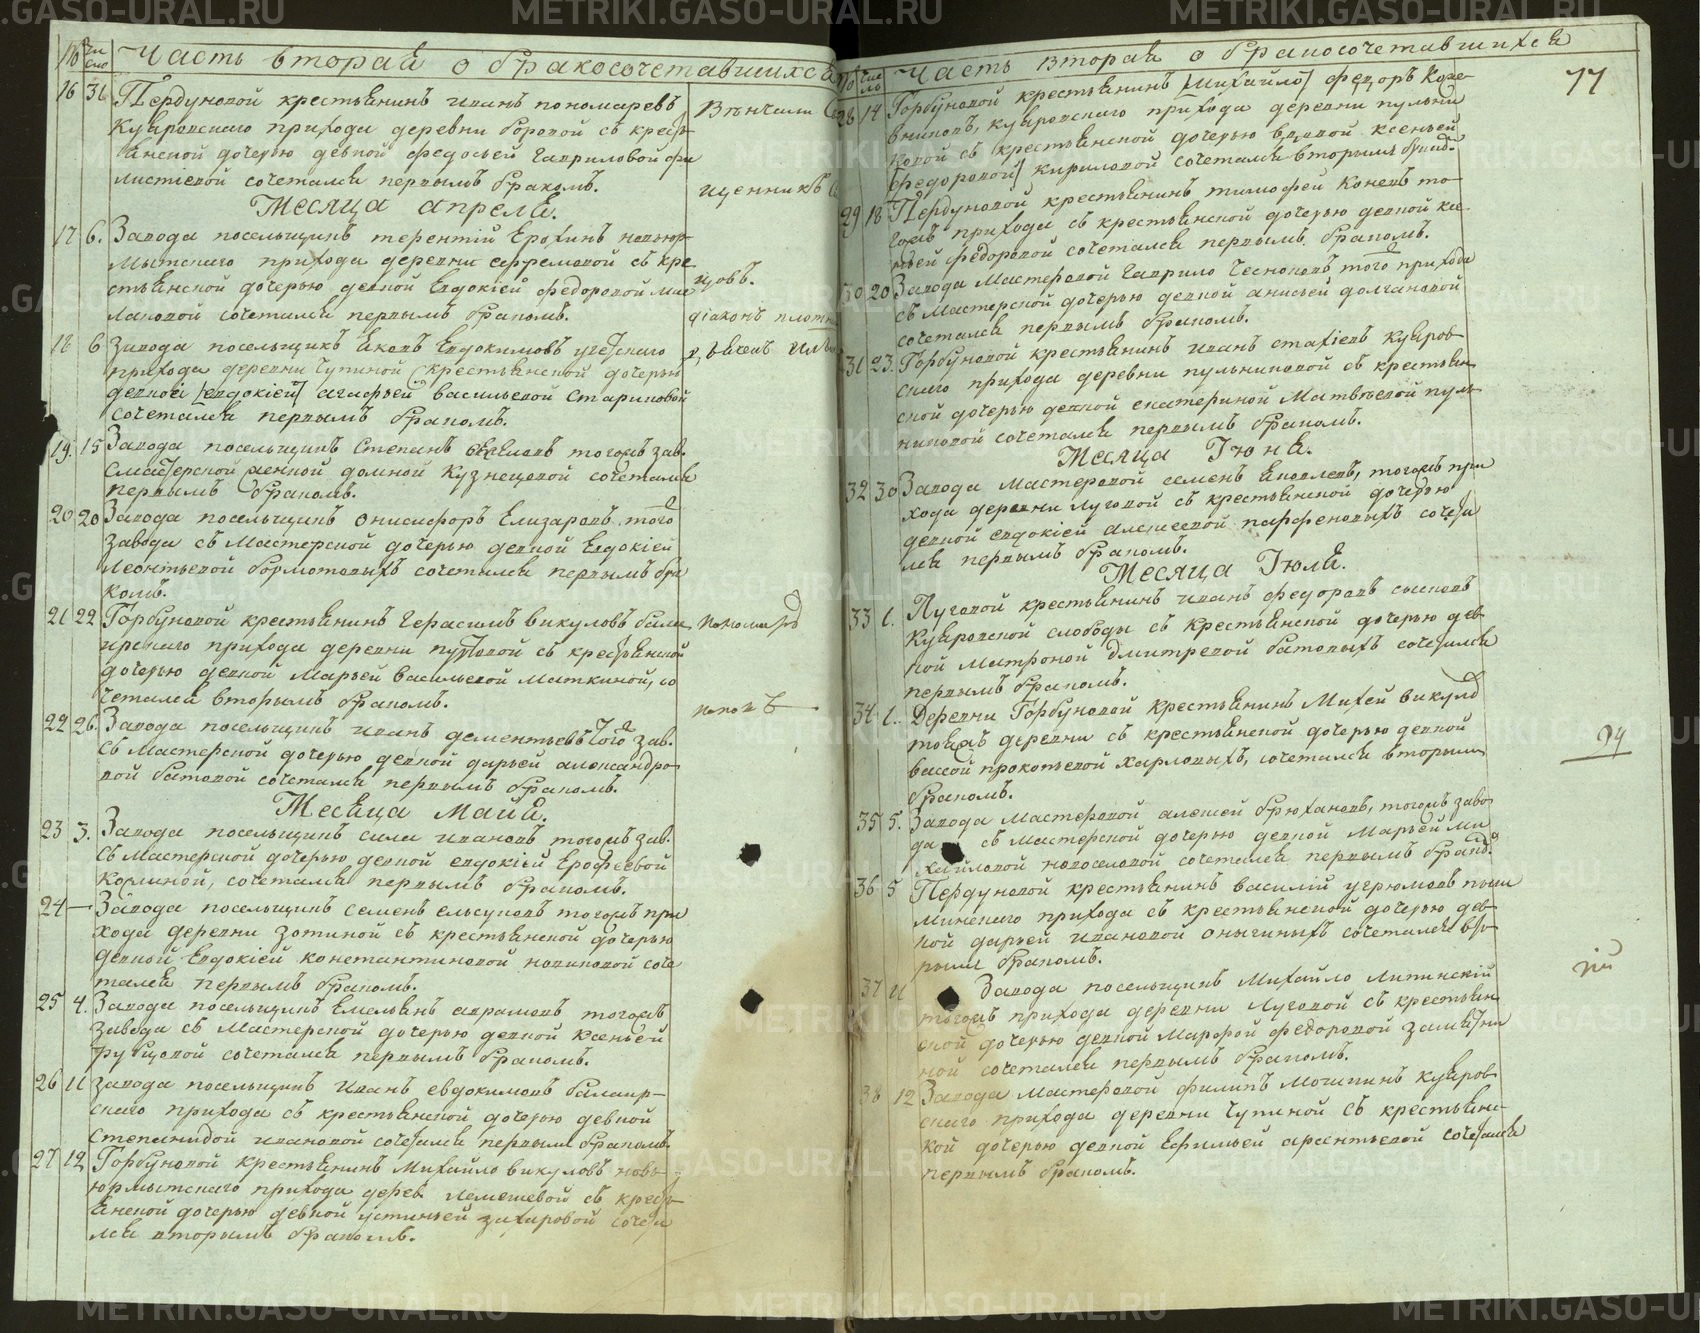 № Число Часть вторая о бракосочетавшихся
16 31 Пердуновой крестьянинъ иванъ пономаревъ
Куяровскаго прихода деревни боровой съ крестъ
янской дочерью девкой федосьей Гавриловой фи
листiевой сочетался первымъ бракомъ.
Месяца апреля.
17 6. Завода посельщикъ терентiй Ерохинъ новоюр
мытскаго прихода деревни ефремовой съ кре
стьянской дочерью девкой Евдокiей федоровой
сочетался первымъ бракомъ.
18 6 Завода посельщикъ Яковъ Евдокимовъ
прихода деревни Чупиной крестьянской дочерью
девкой [евдокiей] агафьей васильевой Стариковой
сочетался первымъ бракомъ.
19. 15 Завода посельщикъ Степанъ тогожъ зав.
съ мастерской женкой домной Кузнецовой сочетался
первымъ бракомъ.
20 20 Завода посельщикъ онисифоръ Елизаровъ того
завода съ мастерской дочерью девкой Евдокiей
Леонтьевой бормотовыхъ сочетался первымъ бра
комъ.
21 22 Горбуновой крестьянинъ Герасимъ викуловъ балаи
ирскаго прихода деревни съ крестьянской
дочерью девкой Марьей васильевой Маткиной, со
четался вторымъ бракомъ.
22 26. Завода посельщикъ иванъ дементьевъ того зав.
съ мастерской дочерью девкой дарьей александро
вой батовой сочетался первымъ бракомъ.
Месяца Майя.
23 3. Завода посельщикъ сила ивановъ тогожъ зав.
съ мастерской дочерью девкой евдокiей Ерофеевой
сочетался первымъ бракомъ.
24 — Завода посельщикъ семенъ елсуковъ тогожъ при
хода деревни зотиной съ крестьянской дочерью
девкой Евдокiей константиновой новиковой соче
тался первымъ бракомъ.
25 4. Завода посельщикъ Емельянъ авраамовъ тогожъ
завода съ мастерской дочерью девкой ксеньей
рубцовой сочетался первымъ бракомъ.
26 11 Завода посельщикъ иванъ евдокимовъ балаир-
скаго прихода съ крестьянской дочерью девкой
степанидой ивановой сочетался первымъ бракомъ.
27 12 Горбуновой крестьянинъ Михайло викуловъ ново-
юрмытскаго прихода дерев. Лемешевой съ крестъ
янской дочерью девкой устиньей захаровой сочета
лся вторымъ бракомъ.
Венчали
щенникъ
цовъ.
дiаконъ
пономарь
поповъ
77
№ Число Часть вторая о бракосочетавшихся
28 14 Горбуновой крестьянинъ [Михайло] федоръ Коре
вниковъ, куяровскаго прихода деревни пульни
ковой съ крестьянской дочерью вдовой ксеньей
[федоровой] кириловой сочетался вторымъ брак.
29 18 Пердуновой крестьянинъ тимофей Коневъ то
гожъ прихода съ крестьянской дочерью девкой ксе
ньей федоровой сочетался первымъ бракомъ.
30 20 Завода Мастеровой Гаврило Чесноковъ того прихода
съ Мастерской дочерью девкой анисьей долгановой
сочетался первымъ бракомъ.
31 23. Горбуновой крестьянинъ иванъ статiевъ куяров
скаго прихода деревни пульниковой съ крестьян
ской дочерью девкой екатериной Матвеевой пуль
никовой сочетался первымъ бракомъ.
Месяца Iюня.
32 30 Завода Мастеровой семенъ Яковлевъ, тогожъ при
хода деревни Луговой съ крестьянской дочерью
девкой евдокiей алексеевой парфеновыхъ сочета
лся первымъ бракомъ.
Месяца Iюля.
33 1. Луговой крестьянинъ иванъ федоровъ сысковъ
Куяровской слободы съ крестьянской дочерью дев
кой Матроной дмитревой батовыхъ сочетался
первымъ бракомъ.
34 1. Деревни Горбуновой крестьянинъ Михей викуловъ
тояжъ деревни съ крестьянской дочерью девкой
вассой прокопьевой харловыхъ, сочетался вторымъ
бракомъ.
35 5. Завода Мастеровой алексей брюхановъ, тогожъ заво
да съ мастерской дочерью девкой Марьей Ми
хайловой новоселовой сочетался первымъ брако.
36 5 Пердуновой крестьянинъ василiй угрюмовъ пыш
минскаго прихода съ крестьянской дочерью дев
кой дарьей ивановой оныгиныхъ сочетался вто
рымъ бракомъ.
37 11 Завода посельщикъ Михайло Липинскiй
тогожъ прихода деревни Луговой съ крестьян
ской дочерью девкой Марфой федоровой
сочетался первымъ бракомъ.
38 12 Завода Мастеровой филипъ Мочигинъ куяров
скаго прихода деревни Чупиной съ крестьянс
кой дочерью девкой Ефимьей арентьевой сочетался
первымъ бракомъ.
METRIKI.GASO-URAL.RU